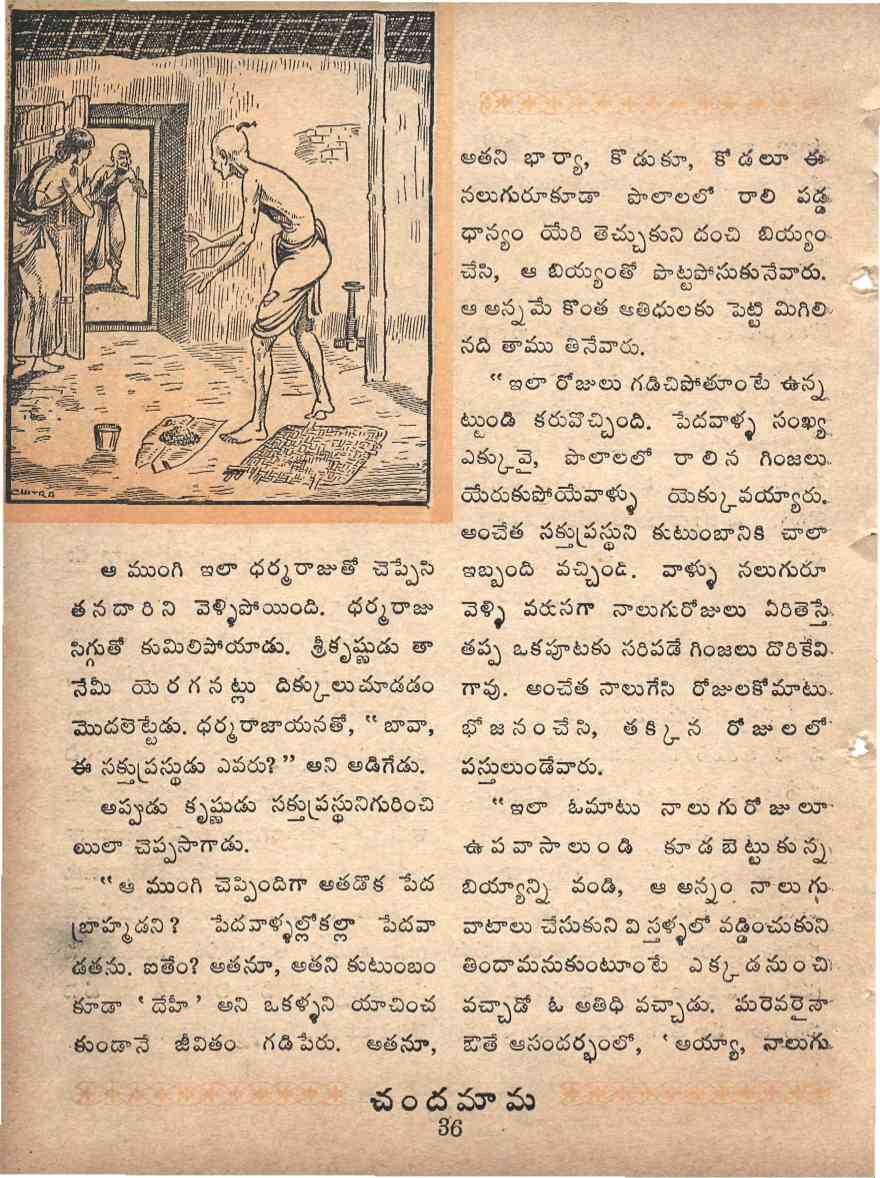 CHITRA
ఆ ముంగి ఇలా ధర్మరాజుతో చెప్పేసి
తనదారిని వెళ్ళిపోయింది. ధర్మరాజు
సిగ్గుతో కుమిలిపోయాడు. శ్రీకృష్ణుడు తా
నేమీ యెరగనట్లు దిక్కులుచూడడం
మొదలెట్టేడు. ధర్మరాజాయనతో, “ బావా,
ఈ సక్తుప్రస్థుడు ఎవరు?” అని అడిగేడు.
అప్పుడు కృష్ణుడు సక్తుప్రస్థునిగురించి
యిలా చెప్పసాగాడు.
“ఆ ముంగి చెప్పిందిగా అతడొక పేద
బ్రాహ్మడని? పేదవాళ్ళల్లోకల్లా పేదవా
డతను. ఐతేం? అతనూ, అతని కుటుంబం
కూడా ‘ దేహీ’ అని ఒకళ్ళని యాచించ
కుండానే జీవితం గడిపేరు. అతనూ,
అతని భార్యా, కొడుకూ, కోడలూ ఈ
నలుగురూకూడా పొలాలలో రాలి పడ్డ
ధాన్యం యేరి తెచ్చుకుని దంచి బియ్యం
చేసి, ఆ బియ్యంతో పొట్టపోసుకునేవారు.
ఆ అన్నమే కొంత అతిధులకు పెట్టి మిగిలి
నది తాము తినేవారు.
“ ఇలా రోజులు గడిచిపోతూంటే ఉన్న
ట్టుండి కరువొచ్చింది. పేదవాళ్ళ సంఖ్య
ఎక్కువై, పొలాలలో రాలిన గింజలు
యేరుకుపోయేవాళ్ళు యెక్కువయ్యారు.
అంచేత సక్తుప్రస్థుని కుటుంబానికి చాలా
ఇబ్బంది వచ్చింది. వాళ్ళు నలుగురూ
వెళ్ళి వరుసగా నాలుగురోజులు ఏరితెస్తే
తప్ప ఒకపూటకు సరిపడే గింజలు దొరికేవి
గావు. అంచేత నాలుగేసి రోజులకోమాటు
భోజనంచేసి, తక్కిన రోజులలో
పస్తులుండేవారు.
“ఇలా ఓమాటు నాలుగురోజులూ
ఉపవాసాలుండి కూడబెట్టుకున్న
బియ్యాన్ని వండి, ఆ అన్నం నాలుగు
వాటాలు చేసుకుని విస్తళ్ళలో వడ్డించుకుని
తిందామనుకుంటూంటే ఎక్కడనుంచి
వచ్చాడో ఓ అతిధి వచ్చాడు. మరెవరైనా
ఔతే ఆసందర్భంలో, ‘ అయ్యా, నాలుగు
చందమామ
36